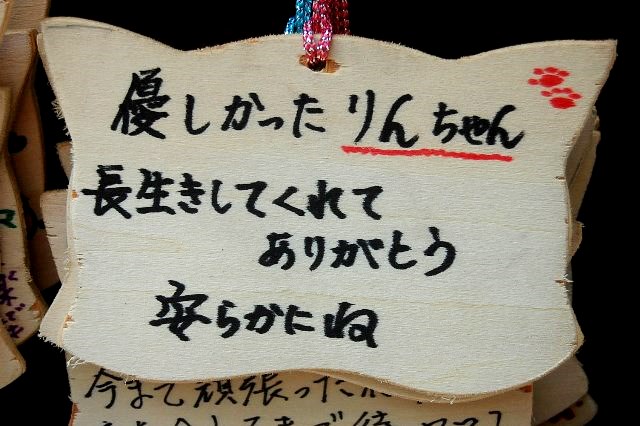 優しかったりんちゃん
長生きしてくれて
ありがとう
安らかにね
今まで頑張った